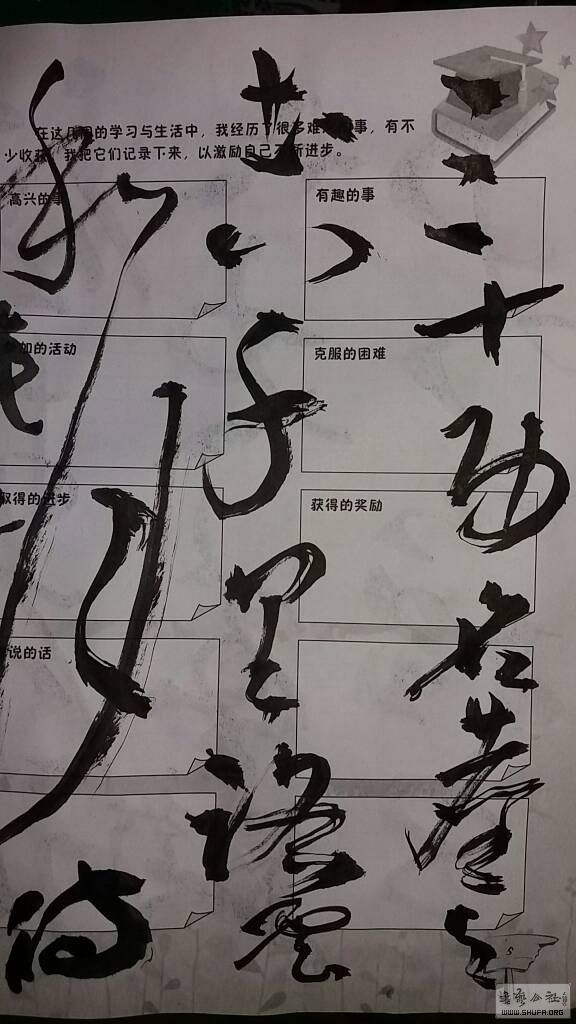 三十功名塵与
土八千里路雲
和月
在这的学习与生活中，我经历了很多难事，有不
少收我把它们记录下来，以激励自己不断进步。
高兴的事
有趣的事
参加的活动
克服的困难
取得的进步
获得的奖励
说的话
WWW.SHUFA.ORG